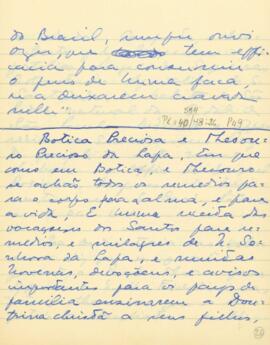 do Brasil, sempre ouvi
dizer, que tem effi-
cacia para consumir
o ferro de huma faca,
se a deixarem cravar
nelle".
PR 40/43:26 P49
Botica Preciosa e Thesou-
ro Precioso da Lapa. Em que
como em Botica, e Thesouro
se achão todos os remedios pa-
ra o corpo, para a alma, e para
a vida. E huma receita das
vocações dos Santos para re-
medios, e milagres de N. Se-
nhora da Lapa, e muitas
Novenas, devoções, e avisos
importantes para os pays de
familia ensinarem a Dou-
trina christã a seus filhos,